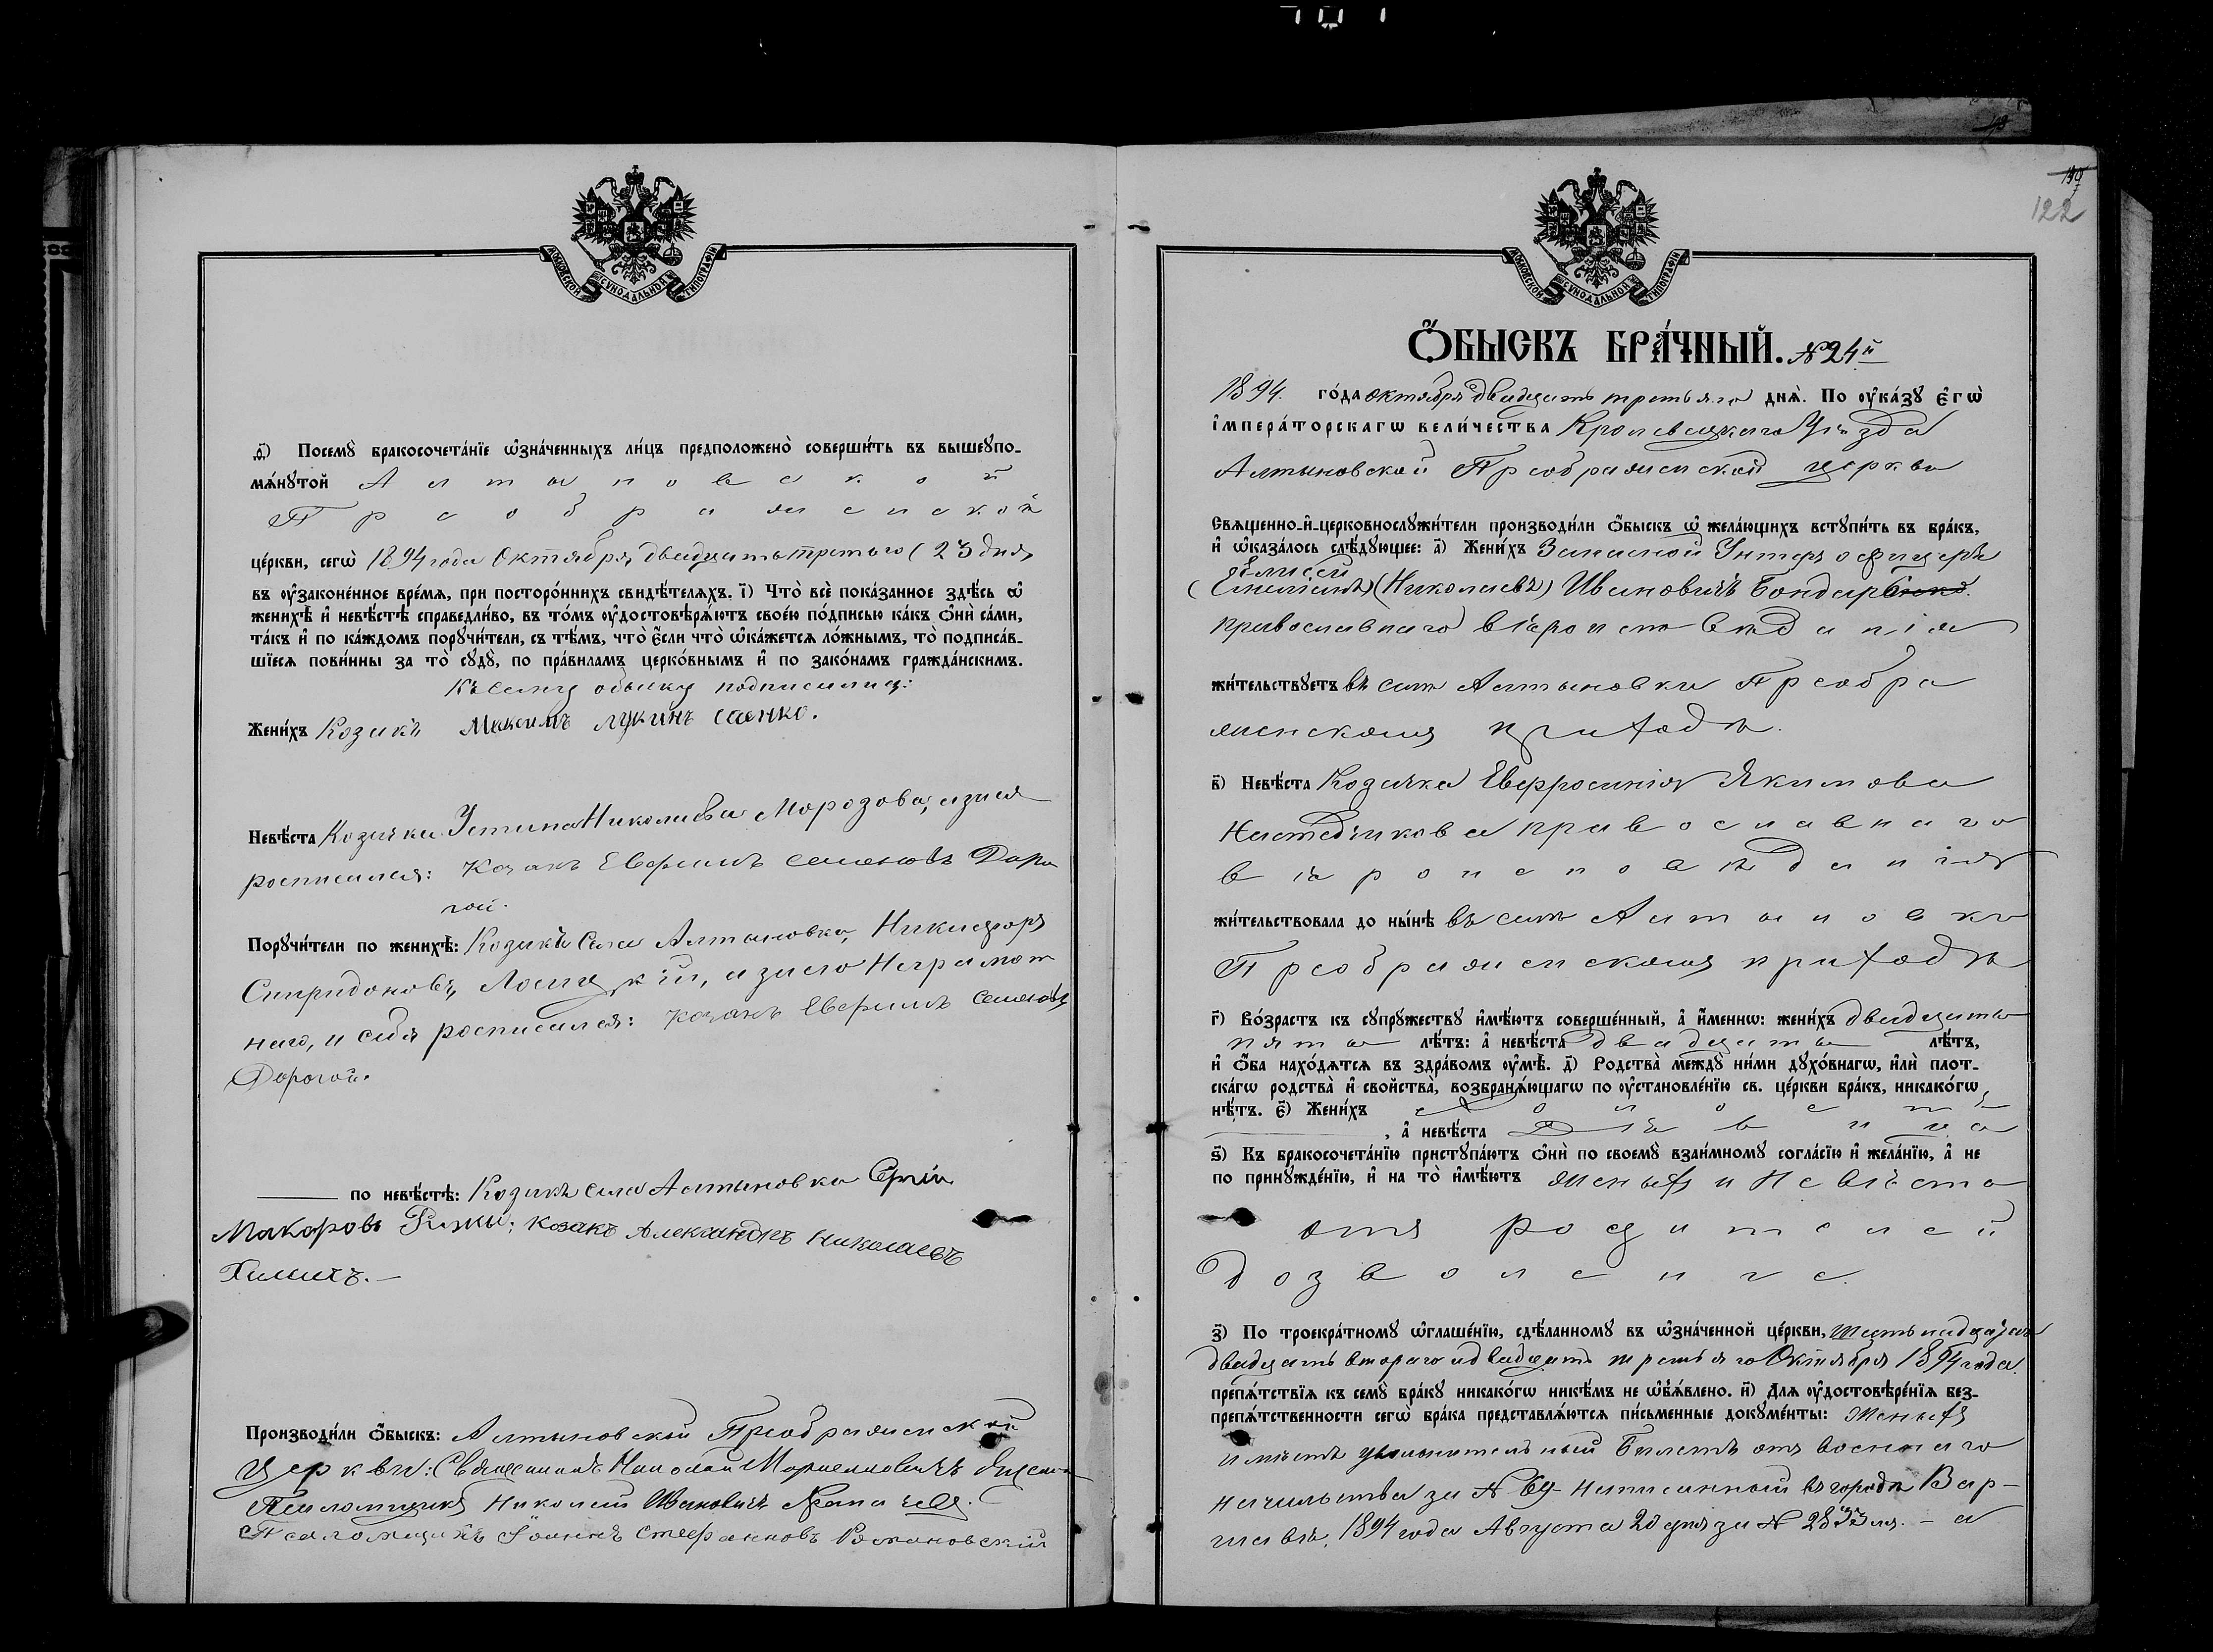 МОСКОВСКОЙ СѴНОДАЛЬНОЙ ТИПОГРАФІИ
д҃) Посемꙋ̀ бракосочета́нїе ѡ҆зна́ченныхъ ли́цъ предположено̀ соверши́ть въ вышеꙋпо-
мѧ́нꙋтой Алтыновской
Преображенской
це́ркви, сегѡ̀ 1894 года Октября двадцать третьяго (23 дня
въ ᲂу҆зако́ненное вре́мѧ, при посторо́ннихъ свидѣ́телѧхъ. і҃) Что̀ всѐ пока́занное здѣ́сь ѡ҆
женихѣ̀ и҆ невѣ́стѣ справедли́во, въ то́мъ ᲂу҆достовѣрѧ́ютъ свое́ю по́дписью ка́къ ѻ҆нѝ са́ми,
та́къ и҆ по ка́ждомъ порꙋчи́тели, съ тѣ́мъ, что̀ є҆́сли что̀ ѡ҆ка́жется ло́жнымъ, то̀ подписа́в-
шїесѧ пови́нны за то̀ сꙋдꙋ̀, по пра́виламъ церко́внымъ и҆ по зако́намъ гражда́нскимъ.
Къ сему обыску подписались:
Жени́хъ Козакъ Максимъ Лукинъ Саенко.
Невѣ́ста Козачка Устина Николаева Морозова, а за нея
росписался: козакъ Евфимъ Семеновъ Доро
гой.
Порꙋчи́тели по женихѣ̀: Козакъ села Алтыновки, Никифоръ
Спиридоновъ, а за его Неграмот
наго, и себя росписался: козакъ Евфимъ Семеновъ
Дорогой.
по невѣ́стѣ: Козакъ села Алтыновки Сергій
Макаровъ козакъ Александръ Николаевъ
Химичъ.
Производи́ли ѻ҆́быскъ: Алтыновской Преображенской
Церкви: Священникъ Николай
Псаломщикъ Николай Ивановичъ
Псаломщикъ Іоаннъ Стефановъ Романовскій
119
122
МОСКОВСКОЙ СѴНОДАЛЬНОЙ ТИПОГРАФІИ
Ѻ҆БЫСКЪ БРА́ЧНЫЙ. № 24й
1894. го́да Октября двадцать третьяго днѧ̀. По ᲂу҆ка́зꙋ є҆гѡ̀
і҆мпера́торскагѡ вели́чества Кролевецкаго Уѣзда
Алтыновской Преображенской церкви
Свѧщенно-и҆-церковнослꙋжи́тели производи́ли ѻ҆́быскъ ѡ҆ жела́ющихъ встꙋпи́ть въ бра́къ,
и҆ ѡ҆каза́лось слѣ́дꙋющее: а҃) Жени́хъ Запасной Унтеръ офицеръ
(Николаевъ) Ивановичъ Бондаренко
православнаго вѣроисповѣданія
жи́тельствꙋетъ въ селѣ Алтыновки Преобра
женскомъ приходѣ.
в҃) Невѣ́ста Козачка Евфросинія Якимова
православнаго
вѣроисповѣданія
жи́тельствовала до ны́нѣ въ селѣ Алтыновки
Преображенскомъ приходѣ
г҃) Во́зрастъ къ сꙋпрꙋ́жествꙋ и҆мѣ́ютъ соверше́нный, а҆ и҆́меннѡ: жени́хъ двадцать
пять лѣ́тъ: а҆ невѣ́ста двадцать лѣ́тъ,
и҆ ѻ҆́ба нахо́дятся въ здра́вомъ ᲂу҆мѣ̀. д҃) Родства̀ междꙋ̀ ни́ми дꙋхо́внагѡ, и҆лѝ плот-
ска́гѡ родства̀ и҆ свойства̀, возбранѧ́ющагѡ по ᲂу҆становле́нїю св. це́ркви бра́къ, никако́гѡ
нѣ́тъ. є҃) Жени́хъ Холостъ
, а҆ невѣ́ста Дѣвица
ѕ҃) Къ бракосочета́нїю пристꙋпа́ютъ ѻ҆нѝ по своемꙋ̀ взаи́мномꙋ согла́сїю и҆ жела́нїю, а҆ не
по принꙋжде́нїю, и҆ на то̀ и҆мѣ́ютъ Женихъ и Невѣста
отъ родителей
дозволеніе.
з҃) По троекра́тномꙋ ѡ҆глаше́нїю, сдѣ́ланномꙋ въ ѡ҆зна́ченной це́ркви, шестьнадцатаго
двадцать втораго и двадцать третьяго Октября 1894 года
препѧ́тствїѧ къ семꙋ̀ бра́кꙋ никако́гѡ никѣ́мъ не ѡ҆б̾ѧ́влено. и҃) Для ᲂу҆достовѣре́нїѧ без-
препѧ́тственности сегѡ̀ бра́ка представлѧ́ются пи́сьменные докꙋме́нты: Женихъ
имѣетъ увольнительный Билетъ отъ военнаго
начальства за № 69 написанный въ городѣ Вар-
шавѣ, 1894 года Августа 20 дня за № 2833мъ. – а